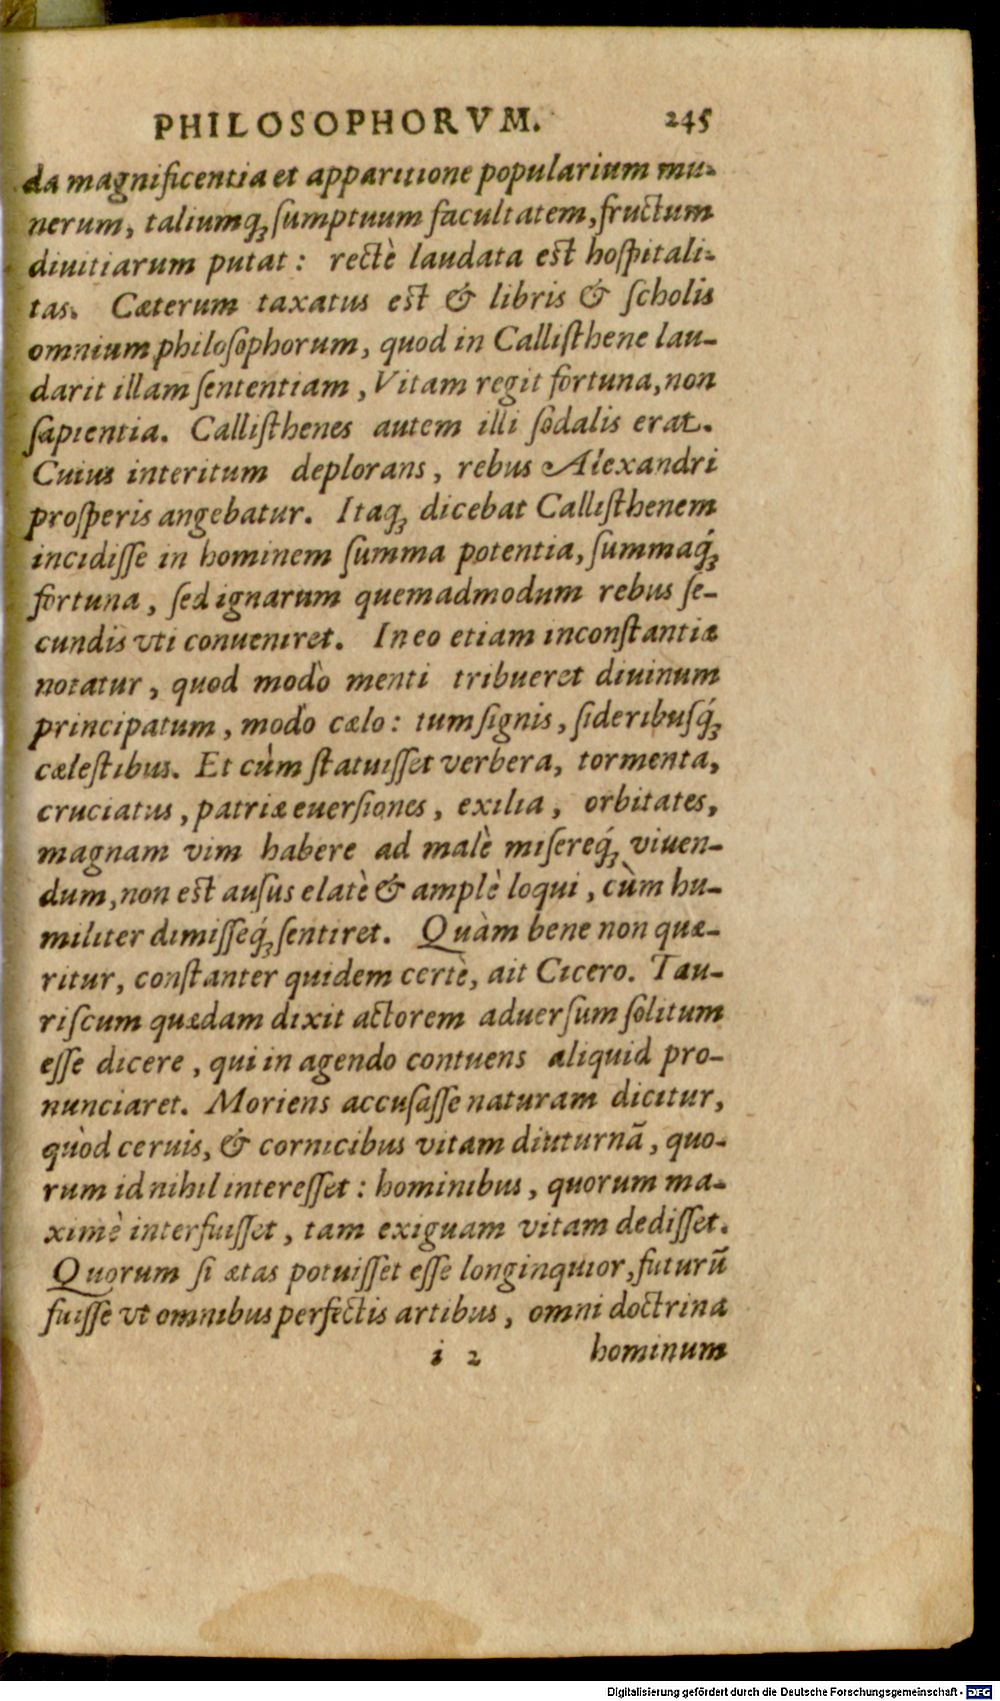 PHILOSOPHORVM. 245
da magnificentia et apparitione popularium mu-
nerum, taliumq́ꝫ sumptuum facultatem, fructum
diuitiarum putat: rectè laudata est hospitali-
tas. Cæterum taxatus est & libris & scholis
omnium philosophorum, quod in Callisthene lau-
darit illam sententiam, Vitam regit fortuna, non
sapientia. Callisthenes autem illi sodalis erat.
Cuius interitum deplorans, rebus Alexandri
prosperis angebatur. Itaqꝫ dicebat Callisthenem
incidisse in hominem summa potentia, summaq́ꝫ
fortuna, sed ignarum quemadmodum rebus se-
cundis vti conueniret. In eo etiam inconstantiæ
notatur, quod modò menti tribueret diuinum
principatum, modò cælo: tum signis, sideribusq́ꝫ
cælestibus. Et cùm statuisset verbera, tormenta,
cruciatus, patriæ euersiones, exilia, orbitates,
magnam vim habere ad malè misereq́ꝫ viuen-
dum, non est ausus elatè & amplè loqui, cùm hu-
militer dimisseq́ꝫ sentiret. Quàm bene non quæ-
ritur, constanter quidem certè, ait Cicero. Tau-
riscum quædam dixit actorem aduersum solitum
esse dicere, qui in agendo contuens aliquid pro-
nunciaret. Moriens accusasse naturam dicitur,
quòd ceruis, & cornicibus vitam diuturnã, quo-
rum id nihil interesset: hominibus, quorum ma-
ximè interfuisset, tam exiguam vitam dedisset.
Quorum si ætas potuisset esse longinquior, futurũ
fuisse vt omnibus perfectis artibus, omni doctrina
i 2 hominum
Digitalisierung gefördert durch die Deutsche Forschungsgemeinschaft - DFG